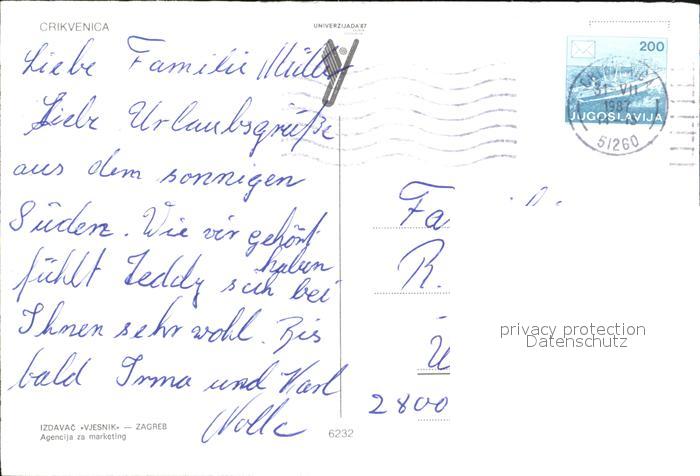 CRIKVENICA
UNIVERZIJADA'87
200
31 VII
1987
JUGOSLAVIJA
51260
Liebe Familie Müller
Liebe Urlaubsgrüße
aus dem sonnigen
Süden. Wie wir gehört
haben
fühlt Teddy sich bei
Ihnen sehr wohl. Bis
bald Irma und Karl
Nolle
Fa
R.
Ü
2800
privacy protection
Datenschutz
IZDAVAČ »VJESNIK« — ZAGREB
Agencija za marketing
6232